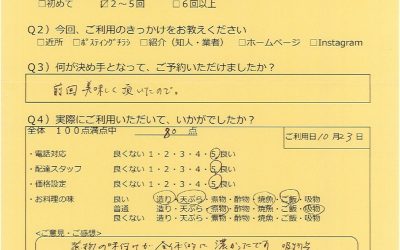 □初めて ☑2～5回 □6回以上
Q2）今回、ご利用のきっかけをお教えください
□近所 □ポスティングチラシ □紹介（知人・業者） □ホームページ □Instagram
Q3）何が決め手となって、ご予約いただけましたか？
前回美味しく頂いたので。
Q4）実際にご利用いただいて、いかがでしたか？
全体 100点満点中 80 点
ご利用日 10月23日
・電話対応 良くない 1・2・3・4・5 良い
・配達スタッフ 良くない 1・2・3・4・5 良い
・価格設定 良くない 1・2・3・4・5 良い
・お料理の味 良い 造り・天ぷら・煮物・酢物・焼魚・ご飯・吸物
普通 造り・天ぷら・煮物・酢物・焼魚・ご飯・吸物
良くない 造り・天ぷら・煮物・酢物・焼魚・ご飯・吸物
＜ご意見・ご感想＞
煮物の味付けが全体的に濃かったです